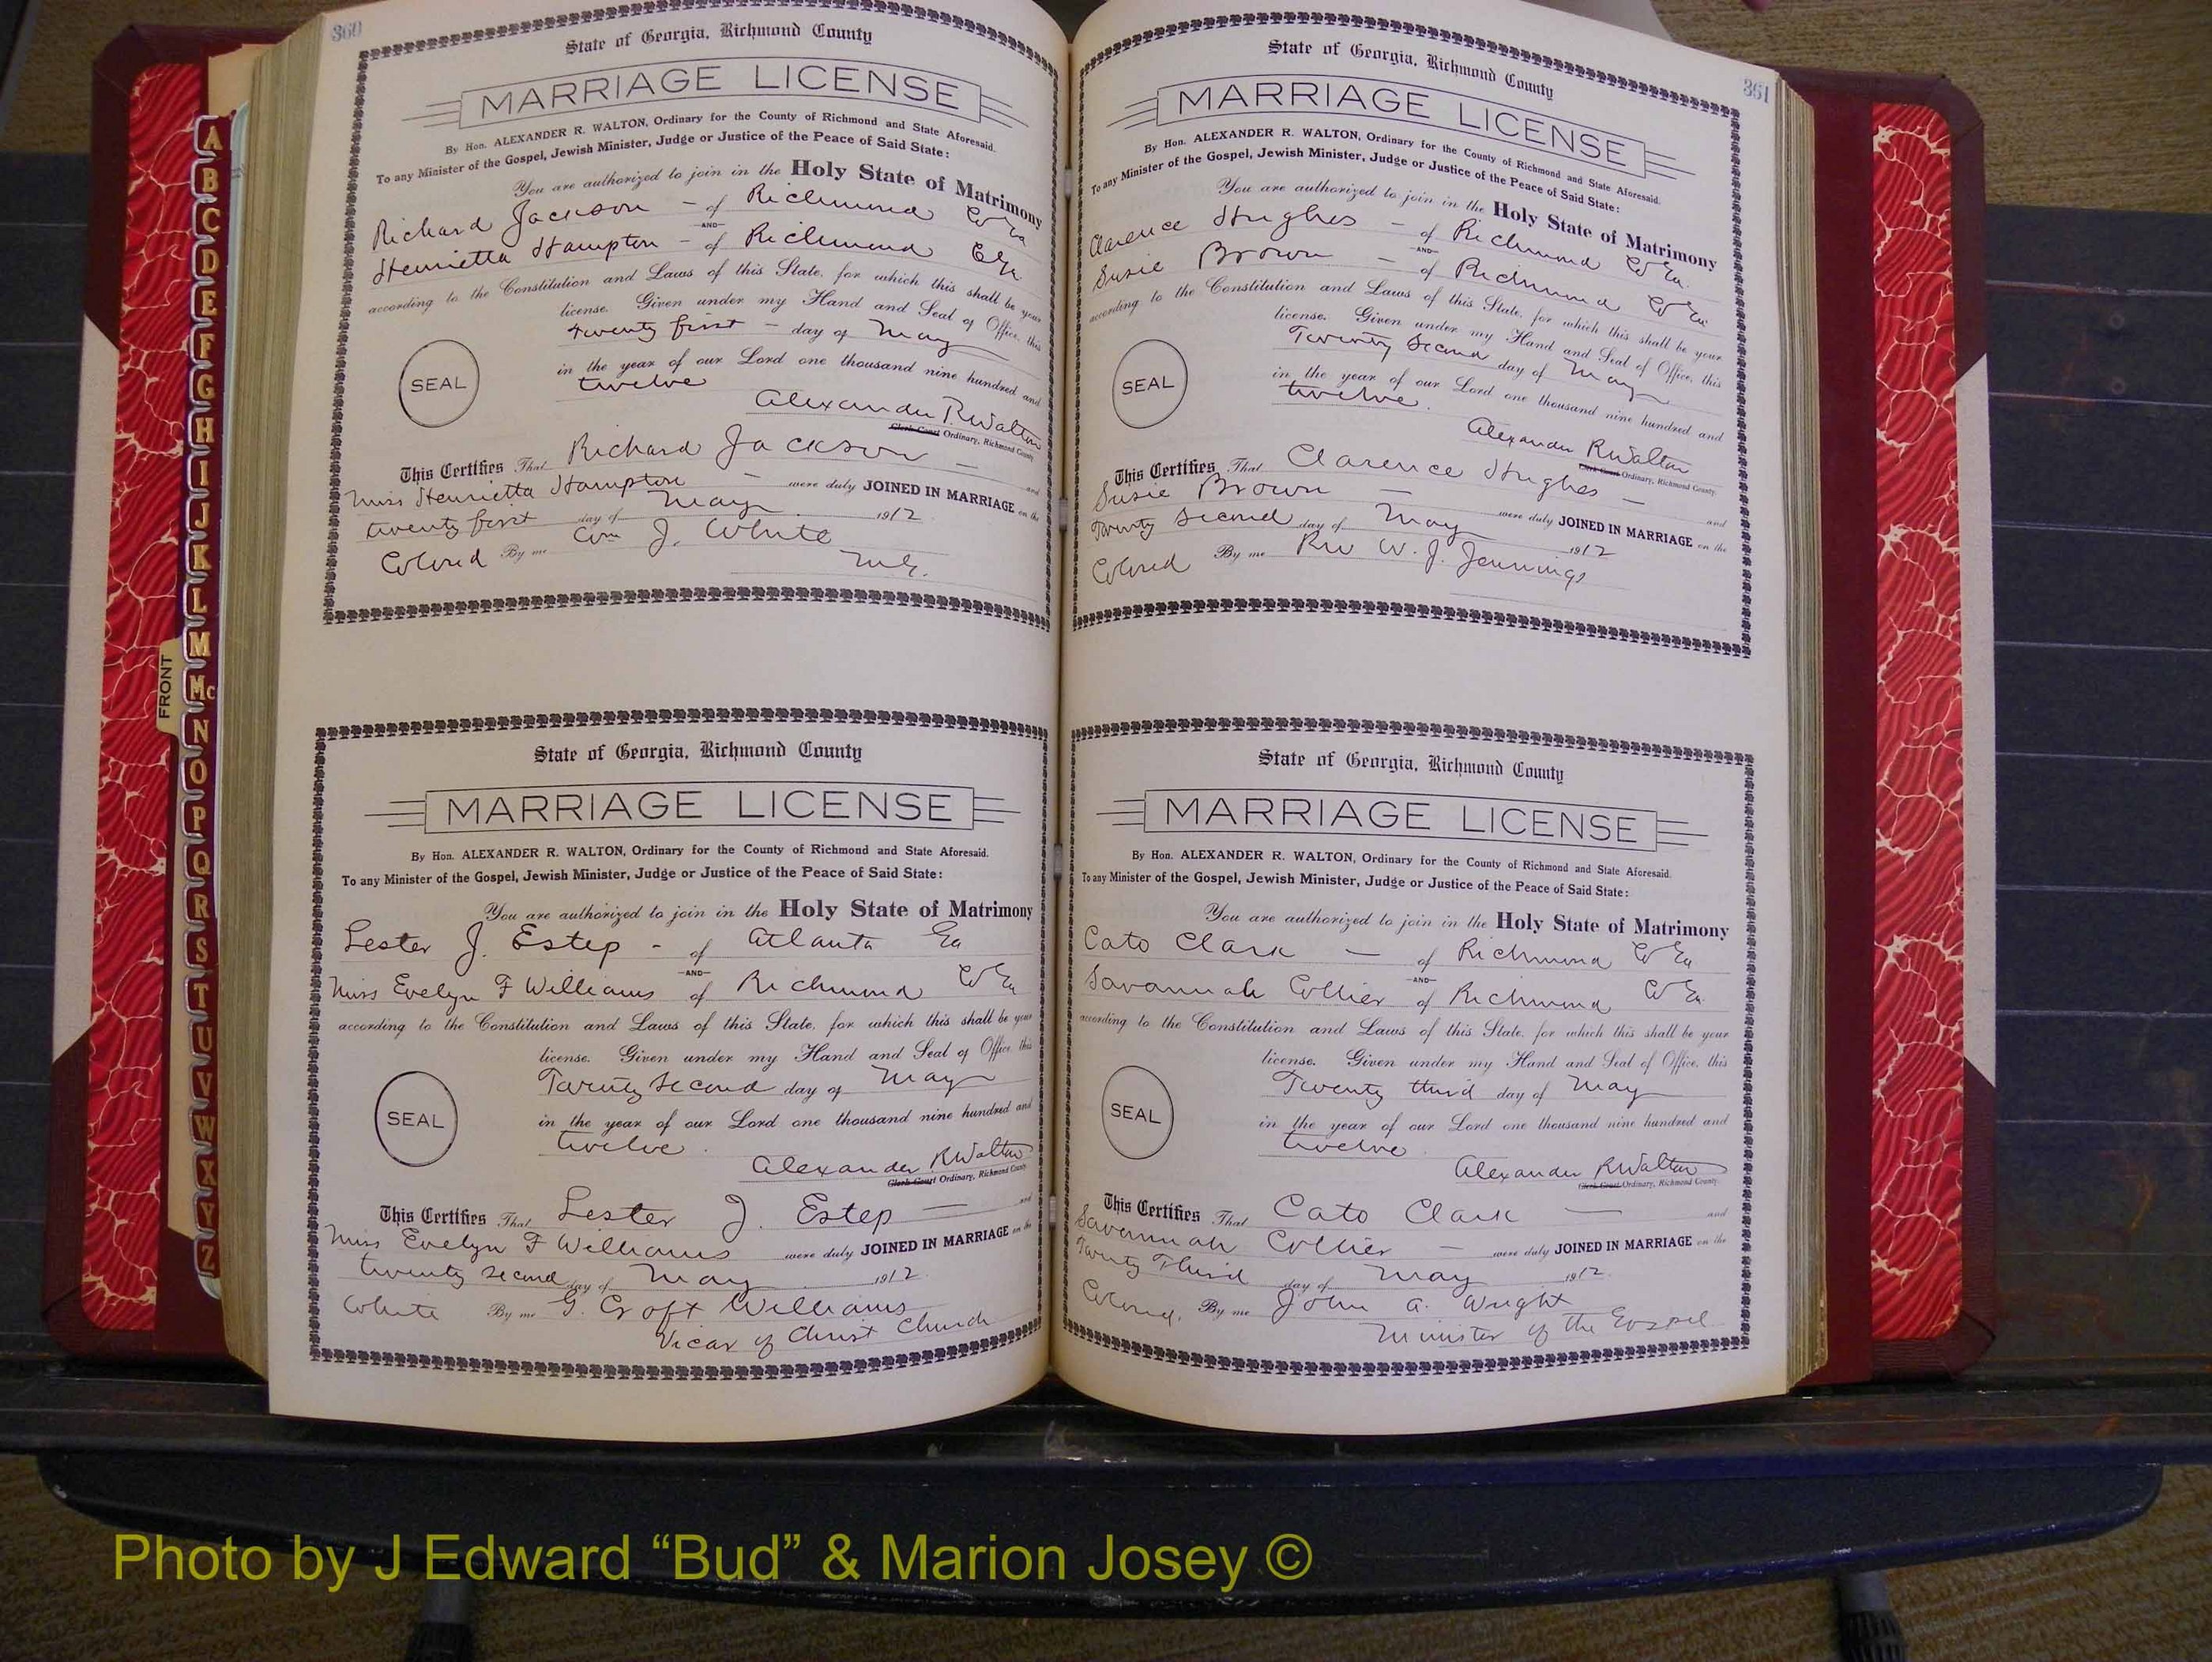 360
State of Georgia, Richmond County
MARRIAGE LICENSE
By Hon. ALEXANDER R. WALTON, Ordinary for the County of Richmond and State Aforesaid.
To any Minister of the Gospel, Jewish Minister, Judge or Justice of the Peace of Said State:
You are authorized to join in the Holy State of Matrimony
Richard Jackson - of Richmond Co Ga
AND
Henrietta Hampton - of Richmond Co Ga
according to the Constitution and Laws of this State, for which this shall be your
license. Given under my Hand and Seal of Office, this
twenty first - day of May
in the year of our Lord one thousand nine hundred and
twelve
SEAL
Alexander R. Walton
Clerk Court Ordinary, Richmond County
This Certifies That Richard Jackson - and
Miss Henrietta Hampton - were duly JOINED IN MARRIAGE on the
twenty first day of May 1912
Colored By me Wm J. White
M.G.
State of Georgia, Richmond County
MARRIAGE LICENSE
By Hon. ALEXANDER R. WALTON, Ordinary for the County of Richmond and State Aforesaid.
To any Minister of the Gospel, Jewish Minister, Judge or Justice of the Peace of Said State:
You are authorized to join in the Holy State of Matrimony
Lester J. Estep - of Atlanta Ga
AND
Miss Evelyn F Williams of Richmond Co Ga
according to the Constitution and Laws of this State, for which this shall be your
license. Given under my Hand and Seal of Office, this
Twenty Second day of May
in the year of our Lord one thousand nine hundred and
twelve.
SEAL
Alexander R Walton
Clerk Court Ordinary, Richmond County
This Certifies That Lester J. Estep - and
Miss Evelyn F Williams were duly JOINED IN MARRIAGE on the
twenty second day of May 1912.
White By me G. Croft Williams
Vicar of Christ Church
361
State of Georgia, Richmond County
MARRIAGE LICENSE
By Hon. ALEXANDER R. WALTON, Ordinary for the County of Richmond and State Aforesaid.
To any Minister of the Gospel, Jewish Minister, Judge or Justice of the Peace of Said State:
You are authorized to join in the Holy State of Matrimony
Clarence Hughes - of Richmond Co Ga.
AND
Susie Brown - of Richmond Co Ga
according to the Constitution and Laws of this State, for which this shall be your
license. Given under my Hand and Seal of Office, this
Twenty Second day of May
in the year of our Lord one thousand nine hundred and
twelve.
SEAL
Alexander R Walton
Clerk Court Ordinary, Richmond County
This Certifies That Clarence Hughes - and
Susie Brown - were duly JOINED IN MARRIAGE on the
Twenty second day of May 1912
Colored By me Rev W. J. Jennings
State of Georgia, Richmond County
MARRIAGE LICENSE
By Hon. ALEXANDER R. WALTON, Ordinary for the County of Richmond and State Aforesaid.
To any Minister of the Gospel, Jewish Minister, Judge or Justice of the Peace of Said State:
You are authorized to join in the Holy State of Matrimony
Cato Clark - of Richmond Co Ga
AND
Savannah Collier of Richmond Co Ga.
according to the Constitution and Laws of this State, for which this shall be your
license. Given under my Hand and Seal of Office, this
Twenty third day of May
in the year of our Lord one thousand nine hundred and
twelve
SEAL
Alexander R Walton
Clerk Court Ordinary, Richmond County
This Certifies That Cato Clark - and
Savannah Collier - were duly JOINED IN MARRIAGE on the
Twenty Third day of May 1912.
Colored. By me John A. Wright
Minister of the Gospel
A
B
C
D
E
F
G
H
I
J
K
L
M
Mc
N
O
P
Q
R
S
T
U
V
W
X
Y
Z
FRONT
Photo by J Edward “Bud” & Marion Josey ©